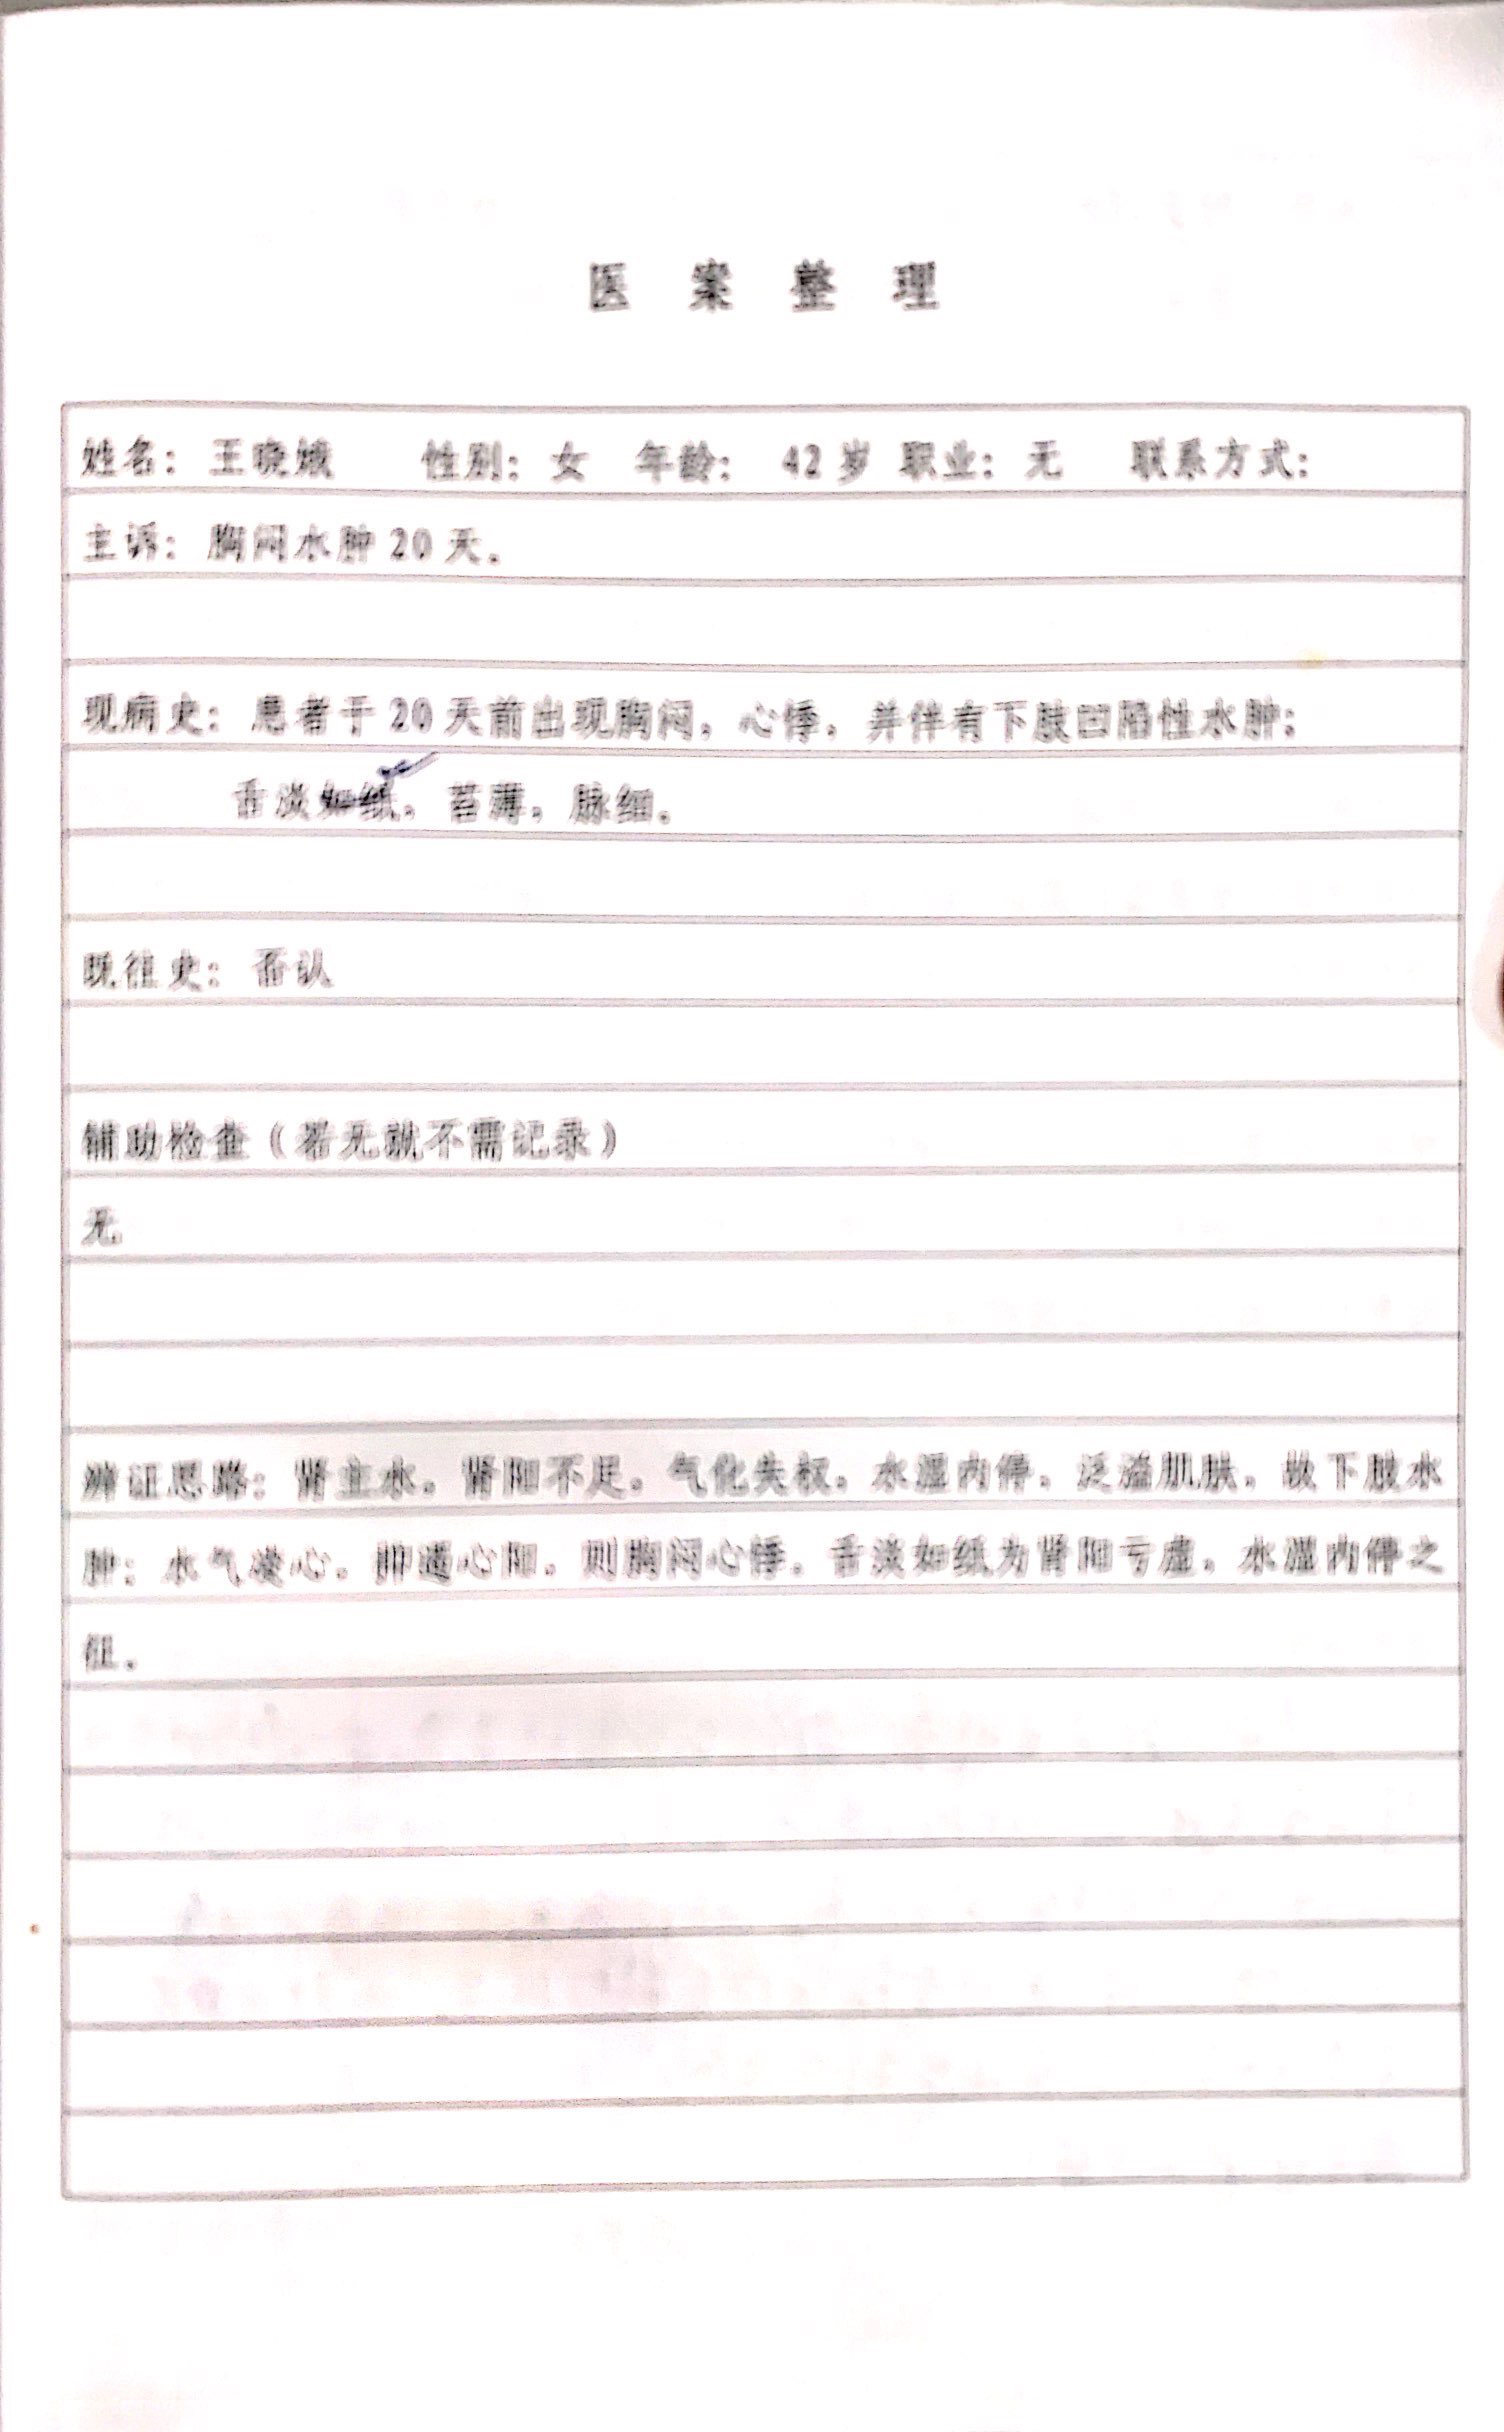 医案整理
姓名：王晓娥 性别：女 年龄：42岁 职业：无 联系方式：
主诉：胸闷水肿20天。
现病史：患者于20天前出现胸闷，心悸，并伴有下肢凹陷性水肿；
舌淡如纸，苔薄，脉细。
既往史：否认
辅助检查（若无就不需记录）
无
辨证思路：肾主水，肾阳不足，气化失权，水湿内停，泛溢肌肤，故下肢水
肿；水气凌心，抑遏心阳，则胸闷心悸。舌淡如纸为肾阳亏虚，水湿内停之
征。